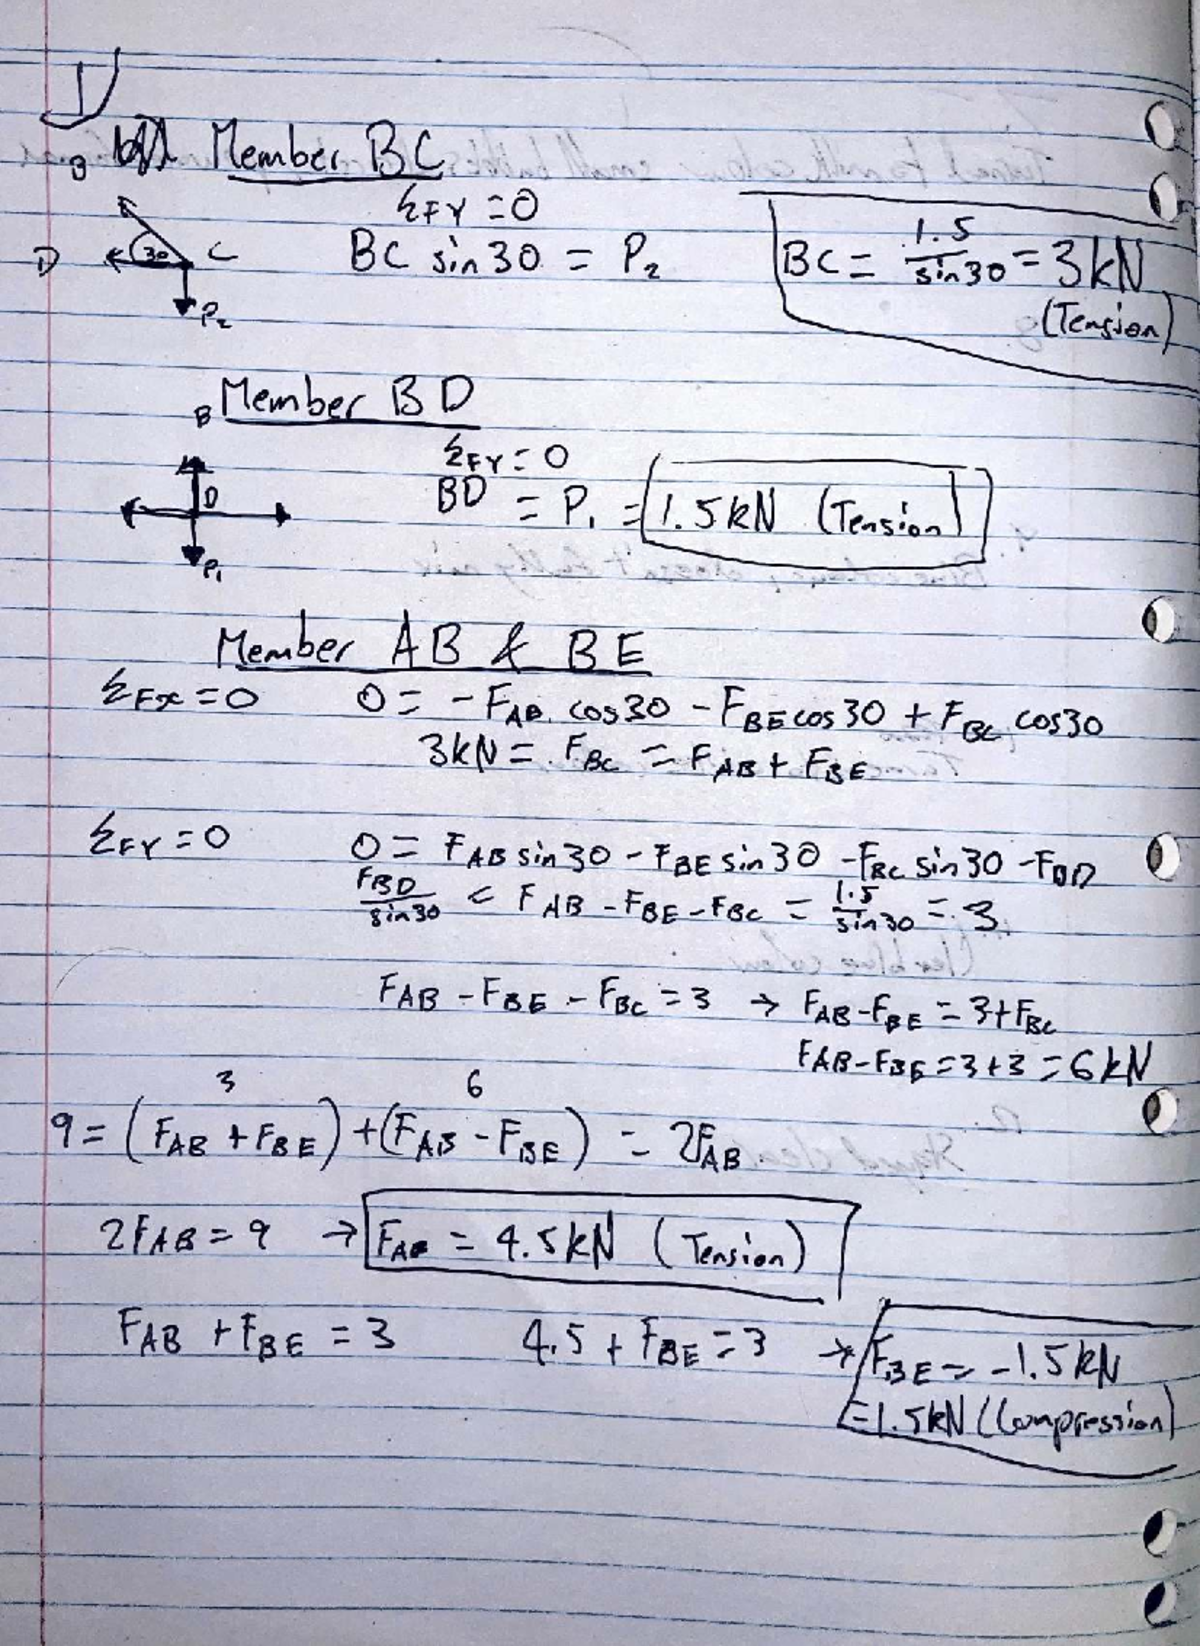 1
Member BC
B
ΣFY = 0
D 30 C
BC sin30 = P₂
BC = 1.5/sin30 = 3kN
(Tension)
P₂
Member BD
B
ΣFY = 0
D
BD = P₁ = 1.5kN (Tension)
P₁
Member AB & BE
ΣFx = 0 0 = -F_AB cos30 - F_BE cos30 + F_BC cos30
3kN = F_BC = F_AB + F_BE
ΣFY = 0 0 = F_AB sin30 - F_BE sin30 - F_BC sin30 - F_BD
F_BD/sin30 = F_AB - F_BE - F_BC = 1.5/sin30 = 3
F_AB - F_BE - F_BC = 3 → F_AB - F_BE = 3 + F_BC
F_AB - F_BE = 3 + 3 = 6kN
3 6
9 = (F_AB + F_BE) + (F_AB - F_BE) = 2F_AB
2F_AB = 9 → F_AB = 4.5kN (Tension)
F_AB + F_BE = 3 4.5 + F_BE = 3 → F_BE = -1.5kN
= 1.5kN (Compression)